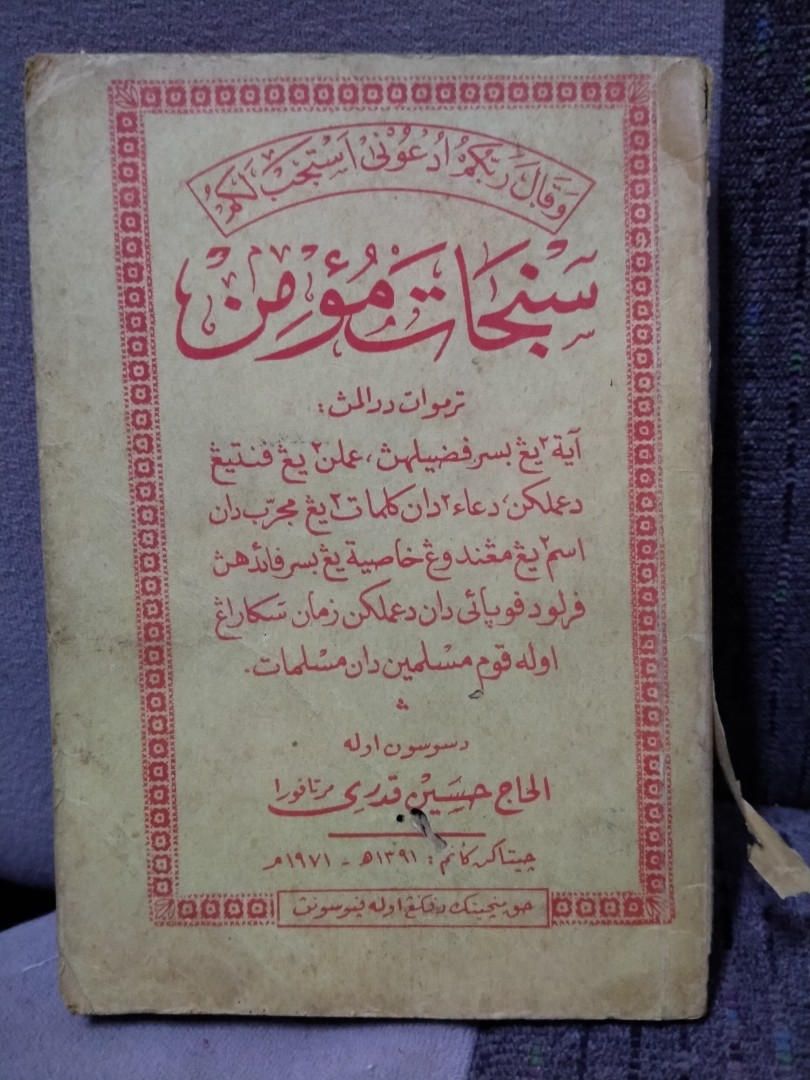 وَقَالَ رَبُّكُمُ ادْعُوْنِيْ اَسْتَجِبْ لَكُمْ
سَنْجَات مُؤْمِنْ
ترموات ددالمڽ :
آية٢ يڠ بسر فضيلهڽ، عملن٢ يڠ ڤنتيڠ
دعملكن، دعاء٢ دان كلمات٢ يڠ مجرّب دان
اسم٢ يڠ مڠندوڠ خاصية يڠ بسر فائدهڽ
ڤرلو دڤوپائي دان دعملكن زمان سكارڠ
اوله قوم مسلمين دان مسلمات.
دسوسون اوله
الحاج حسين قدري مرتافورا
چيتاكن كانم : ١٣٩١ه‍ - ١٩٧١م
حق منچيتق دڤڬڠ اوله ڤيوسونڽ